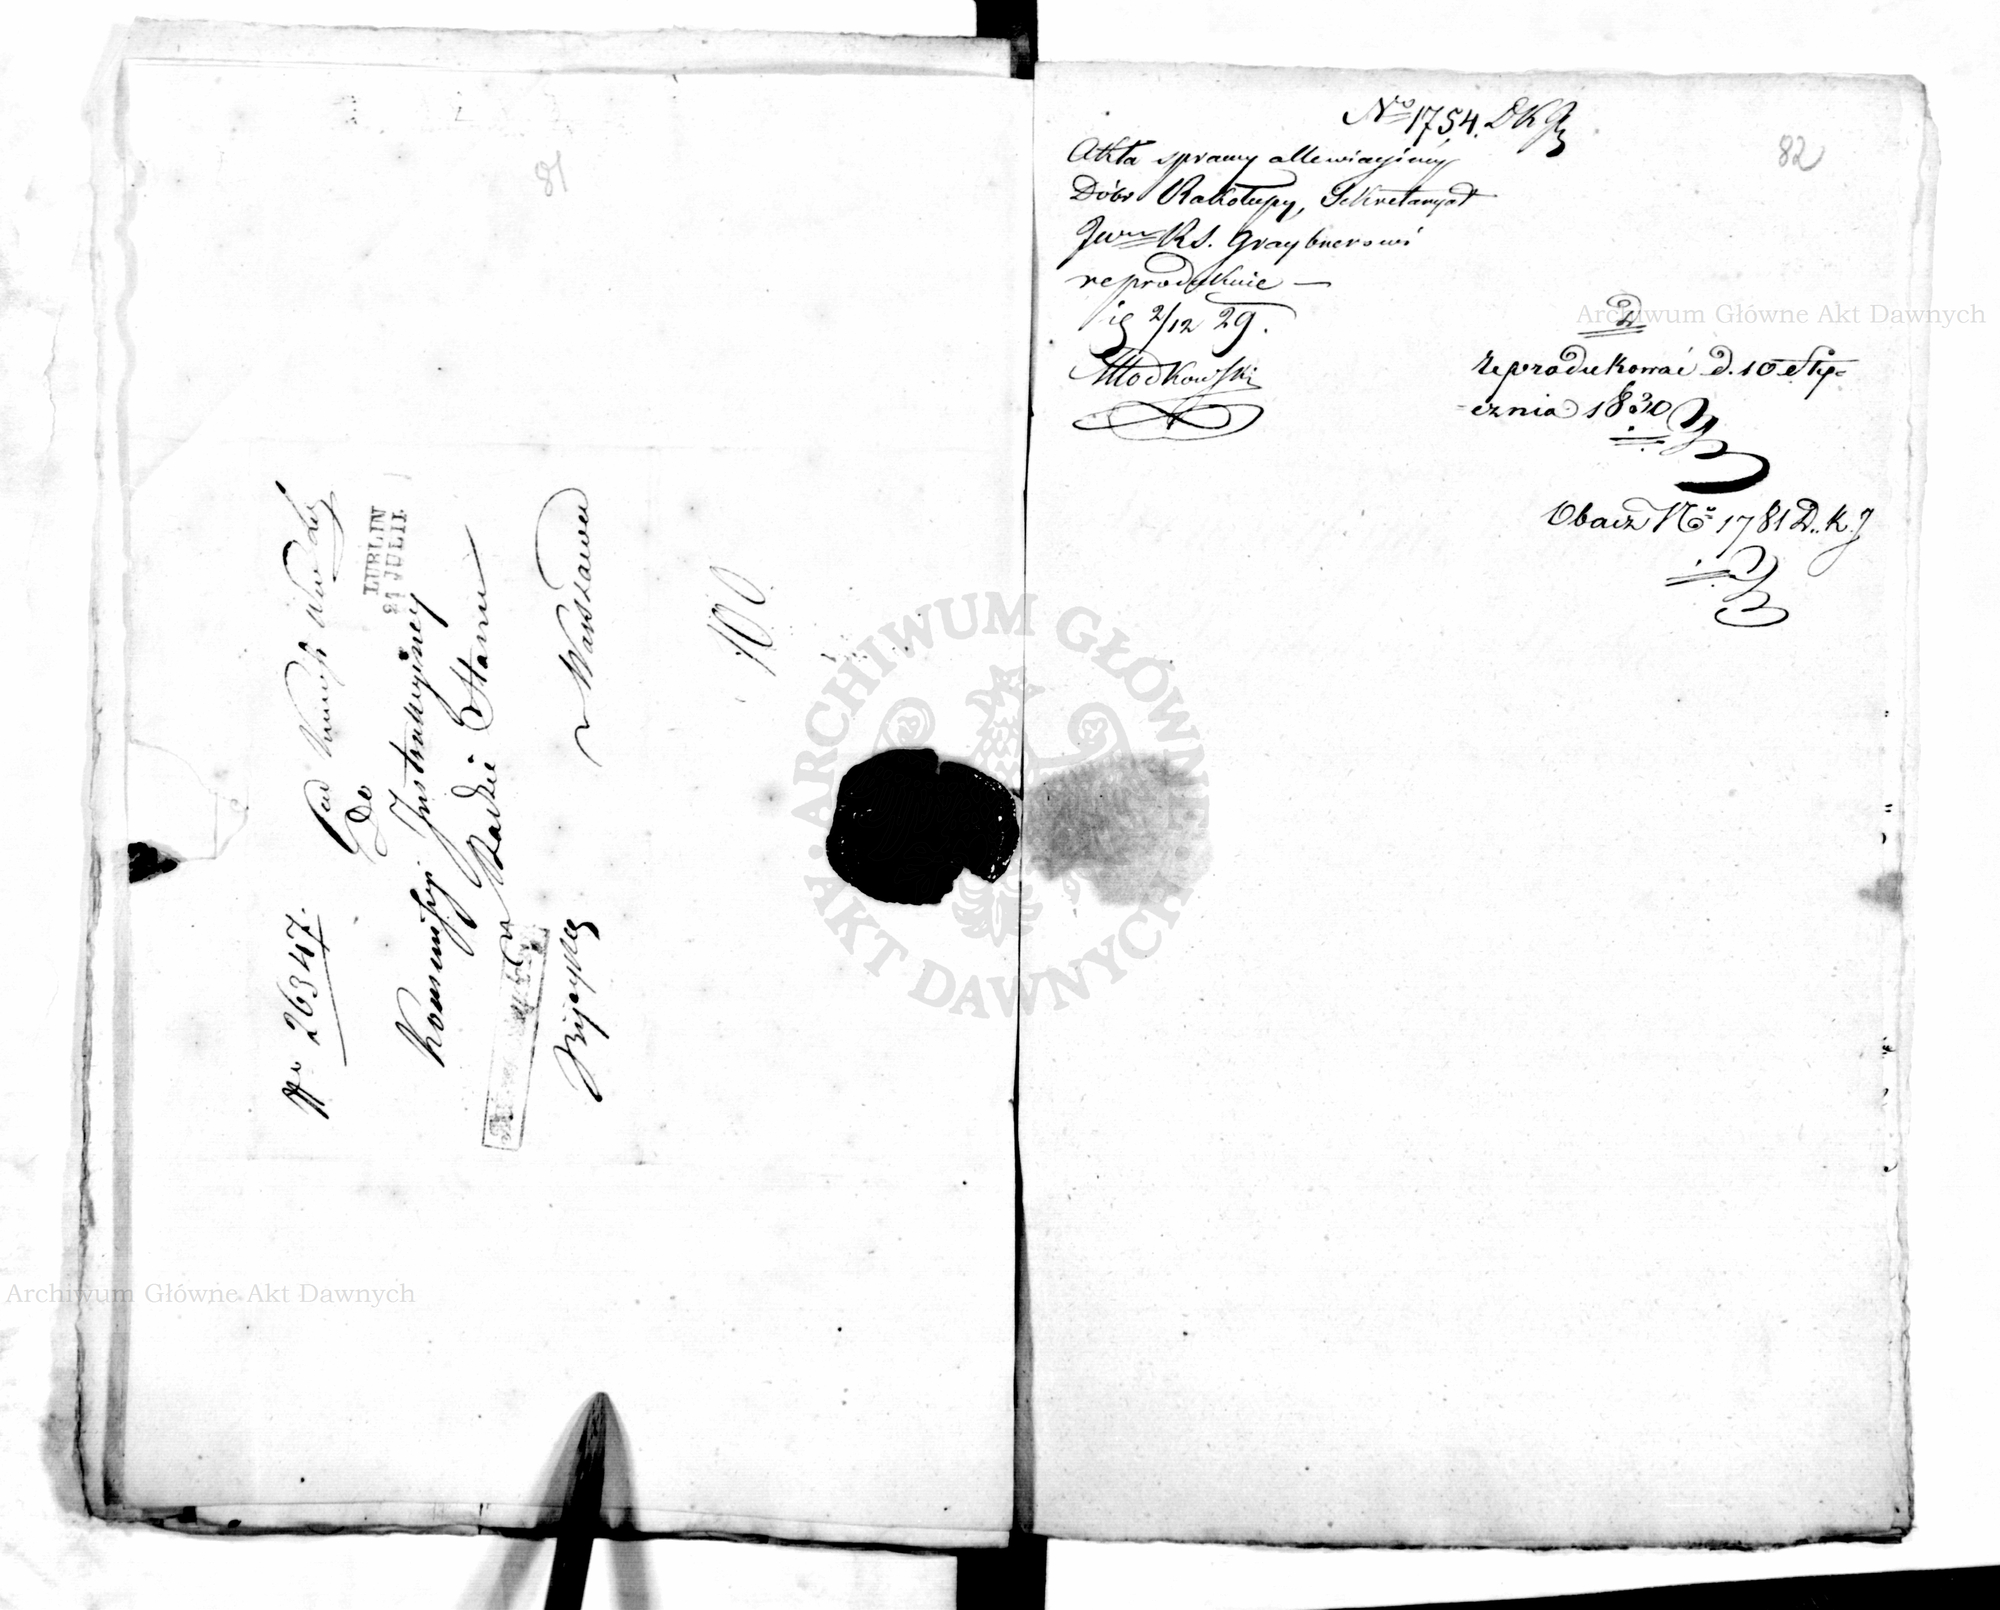 81
No 26347.
Do
Kommissyi Instrukcyiney
w Radzie Stanu
w Warszawie
LUBLIN
21 JULII.
100
No 1754. DKJ
82
Akta sprawy allewiacyiney
Dóbr Rakołupy, Sekretaryat
Jwu RS. Graybnerowi
reprodukuie —
2/12 29.
Młodkowski
D
reprodukować d. 10 Sty-
-cznia 1830
Obacz No 1781 D. K. J
Archiwum Główne Akt Dawnych
Archiwum Główne Akt Dawnych
ARCHIWUM GŁÓWNE AKT DAWNYCH